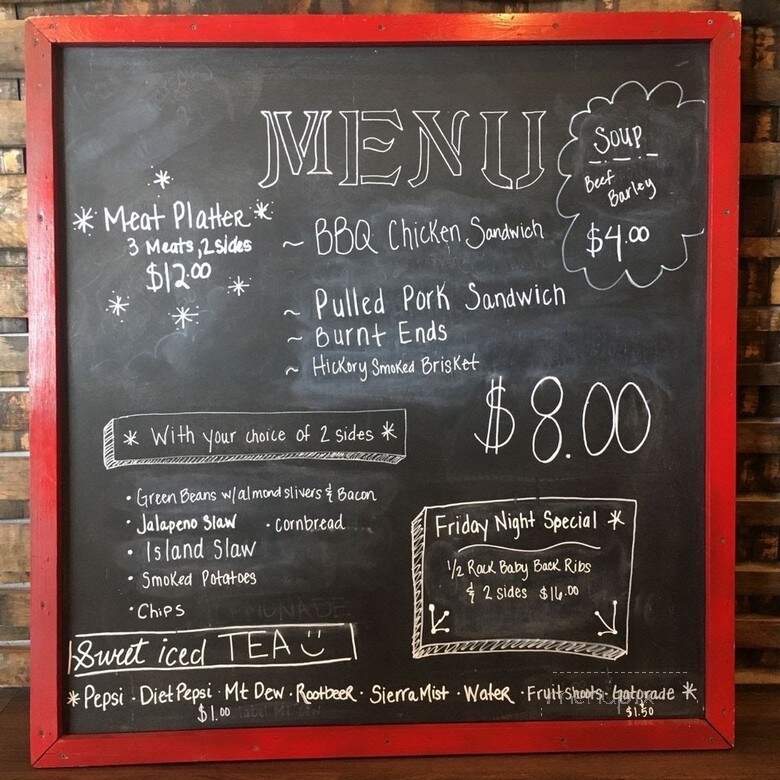 MENU
Soup
Beef
Barley
$4.00
* Meat Platter *
3 Meats, 2 sides
$12.00
~ BBQ Chicken Sandwich
~ Pulled Pork Sandwich
~ Burnt Ends
~ Hickory Smoked Brisket
$8.00
* With your choice of 2 sides *
• Green Beans w/almond slivers & Bacon
• Jalapeno Slaw • cornbread
• Island Slaw
• Smoked Potatoes
• Chips
Friday Night Special *
1/2 Rack Baby Back Ribs
& 2 sides $16.00
Sweet iced TEA
* Pepsi · Diet Pepsi · Mt Dew · Rootbeer · Sierra Mist · Water · Fruitshoots · Gatorade *
$1.00
$1.50